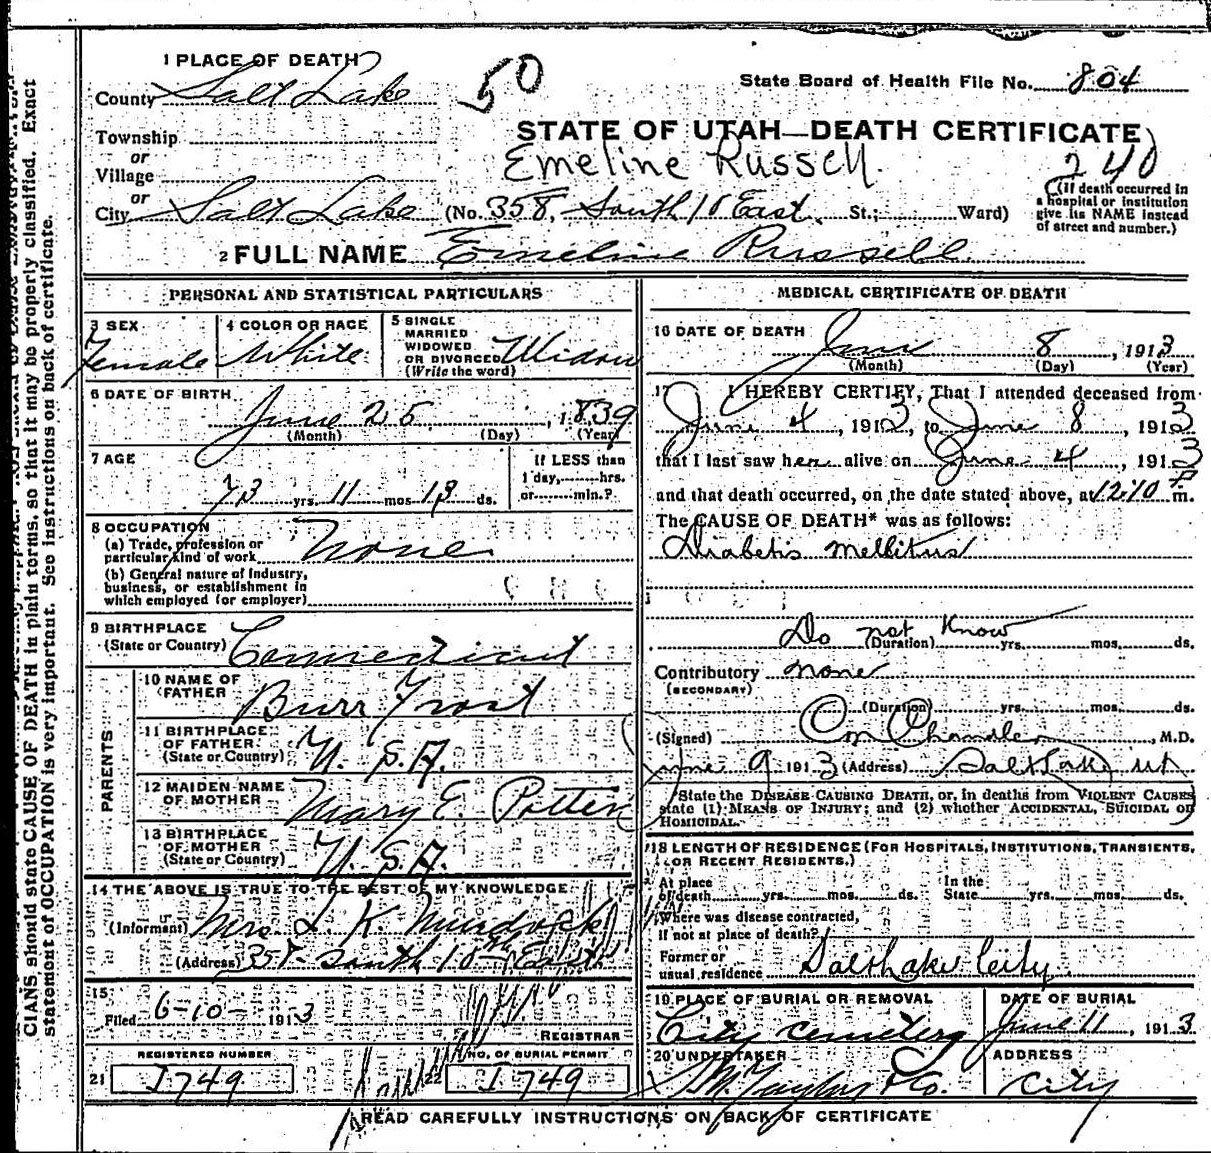 CIANS should state CAUSE OF DEATH in plain terms, so that it may be properly classified. Exact
statement of OCCUPATION is very important. See instructions on back of certificate.
1 PLACE OF DEATH
County Salt Lake
50
State Board of Health File No. 804
Township
or
Village
or
City Salt Lake (No. 358, South 10 East St.; Ward)
STATE OF UTAH—DEATH CERTIFICATE
Emeline Russell.
240
(If death occurred in
a hospital or institution
give its NAME instead
of street and number.)
2 FULL NAME Emeline Russell
PERSONAL AND STATISTICAL PARTICULARS
3 SEX
Female
4 COLOR OR RACE
White
5 SINGLE
MARRIED
WIDOWED
OR DIVORCED
(Write the word)
Widow
6 DATE OF BIRTH
June 25, 1839
(Month) (Day) (Year)
7 AGE
73 yrs. 11 mos. 13 ds.
If LESS than
1 day, hrs.
or min.?
8 OCCUPATION
(a) Trade, profession or
particular kind of work None
(b) General nature of industry,
business, or establishment in
which employed (or employer)
9 BIRTHPLACE
(State or Country) Connecticut
PARENTS
10 NAME OF
FATHER Burr Frost
11 BIRTHPLACE
OF FATHER
(State or Country) U. S. A.
12 MAIDEN NAME
OF MOTHER Mary E. Potter
13 BIRTHPLACE
OF MOTHER
(State or Country) U. S. A.
14 THE ABOVE IS TRUE TO THE BEST OF MY KNOWLEDGE
(Informant) Mrs. L. K. Murdock
(Address) 358 South 10th East
15
Filed 6-10- 1913
REGISTRAR
REGISTERED NUMBER
21 J749
NO. OF BURIAL PERMIT
22 J749
MEDICAL CERTIFICATE OF DEATH
16 DATE OF DEATH
June 8, 1913
(Month) (Day) (Year)
17 I HEREBY CERTIFY, That I attended deceased from
June 4, 1913, to June 8, 1913
that I last saw her alive on June 4, 1913
and that death occurred, on the date stated above, at 12:10 P m.
The CAUSE OF DEATH* was as follows:
Diabetis mellitus
Do not know
(Duration) yrs. mos. ds.
Contributory none
(SECONDARY)
(Duration) yrs. mos. ds.
(Signed) Chandler, M.D.
June 9 1913 (Address) Salt Lake Ut
State the DISEASE CAUSING DEATH, or, in deaths from VIOLENT CAUSES
state (1) MEANS OF INJURY; and (2) whether ACCIDENTAL, SUICIDAL or
HOMICIDAL.
18 LENGTH OF RESIDENCE (FOR HOSPITALS, INSTITUTIONS, TRANSIENTS,
OR RECENT RESIDENTS.)
At place
of death yrs. mos. ds.
In the
State yrs. mos. ds.
Where was disease contracted,
if not at place of death?
Former or
usual residence Salt Lake City
19 PLACE OF BURIAL OR REMOVAL
City cemetery
DATE OF BURIAL
June 11, 1913
20 UNDERTAKER
S.M. Taylor & Co.
ADDRESS
City
READ CAREFULLY INSTRUCTIONS ON BACK OF CERTIFICATE